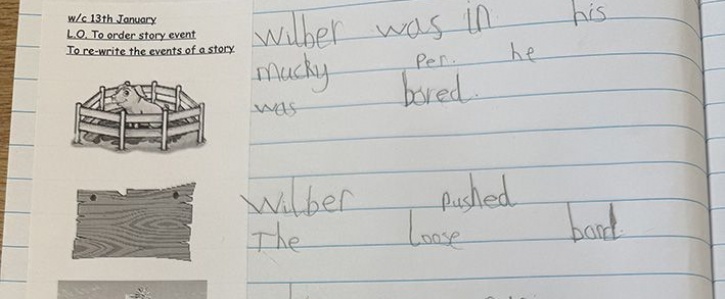 w/c 13th January
L.O. To order story event
To re-write the events of a story
Wilber was in his
mucky Per. he
was bored.
Wilber pushed
The loose bord.